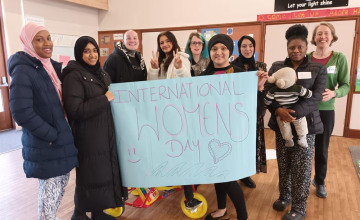 Let your light shine
INTERNATIONAL
WOMENS
DAY